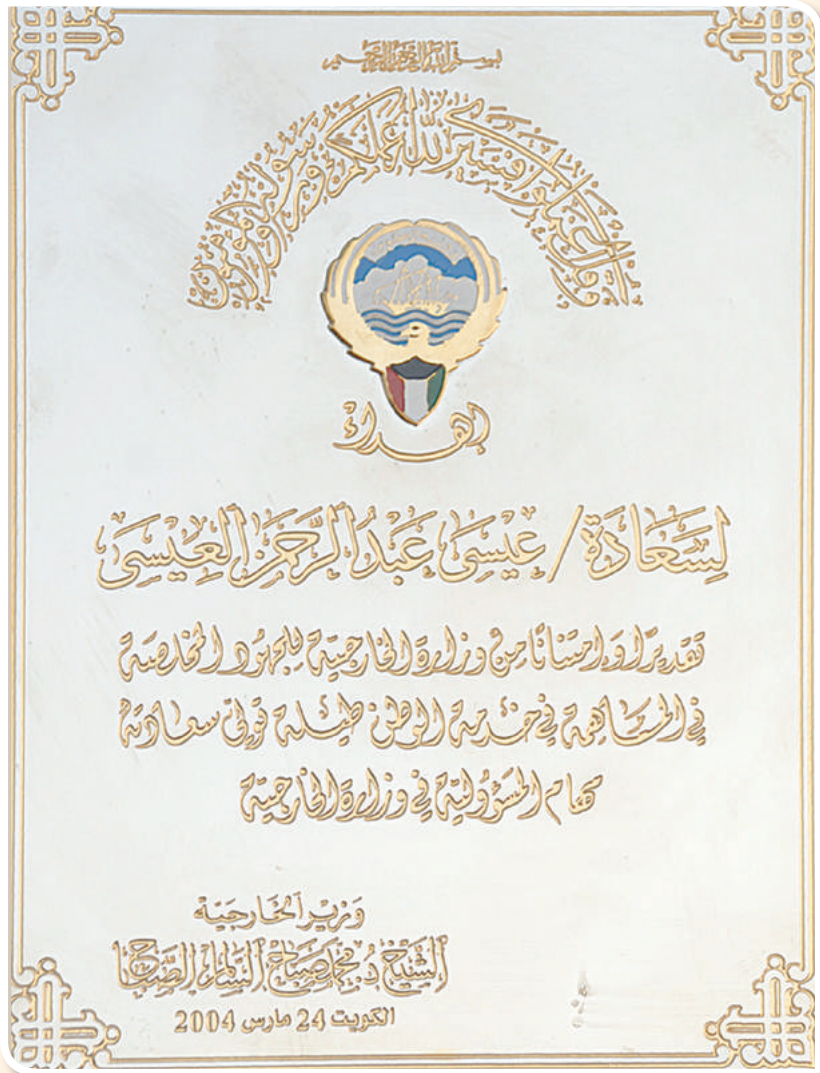 بسم الله الرحمن الرحيم
وقل اعملوا فسيرى الله عملكم ورسوله والمؤمنون
إهداء
لسعادة / عيسى عبد الرحمن العيسى
تقديرًا وامتنانًا من وزارة الخارجية للجهود المخلصة
في المساهمة في خدمة الوطن طيلة تولي سعادته
مهام المسؤولية في وزارة الخارجية
وزير الخارجية
الشيخ د. محمد صباح السالم الصباح
الكويت 24 مارس 2004